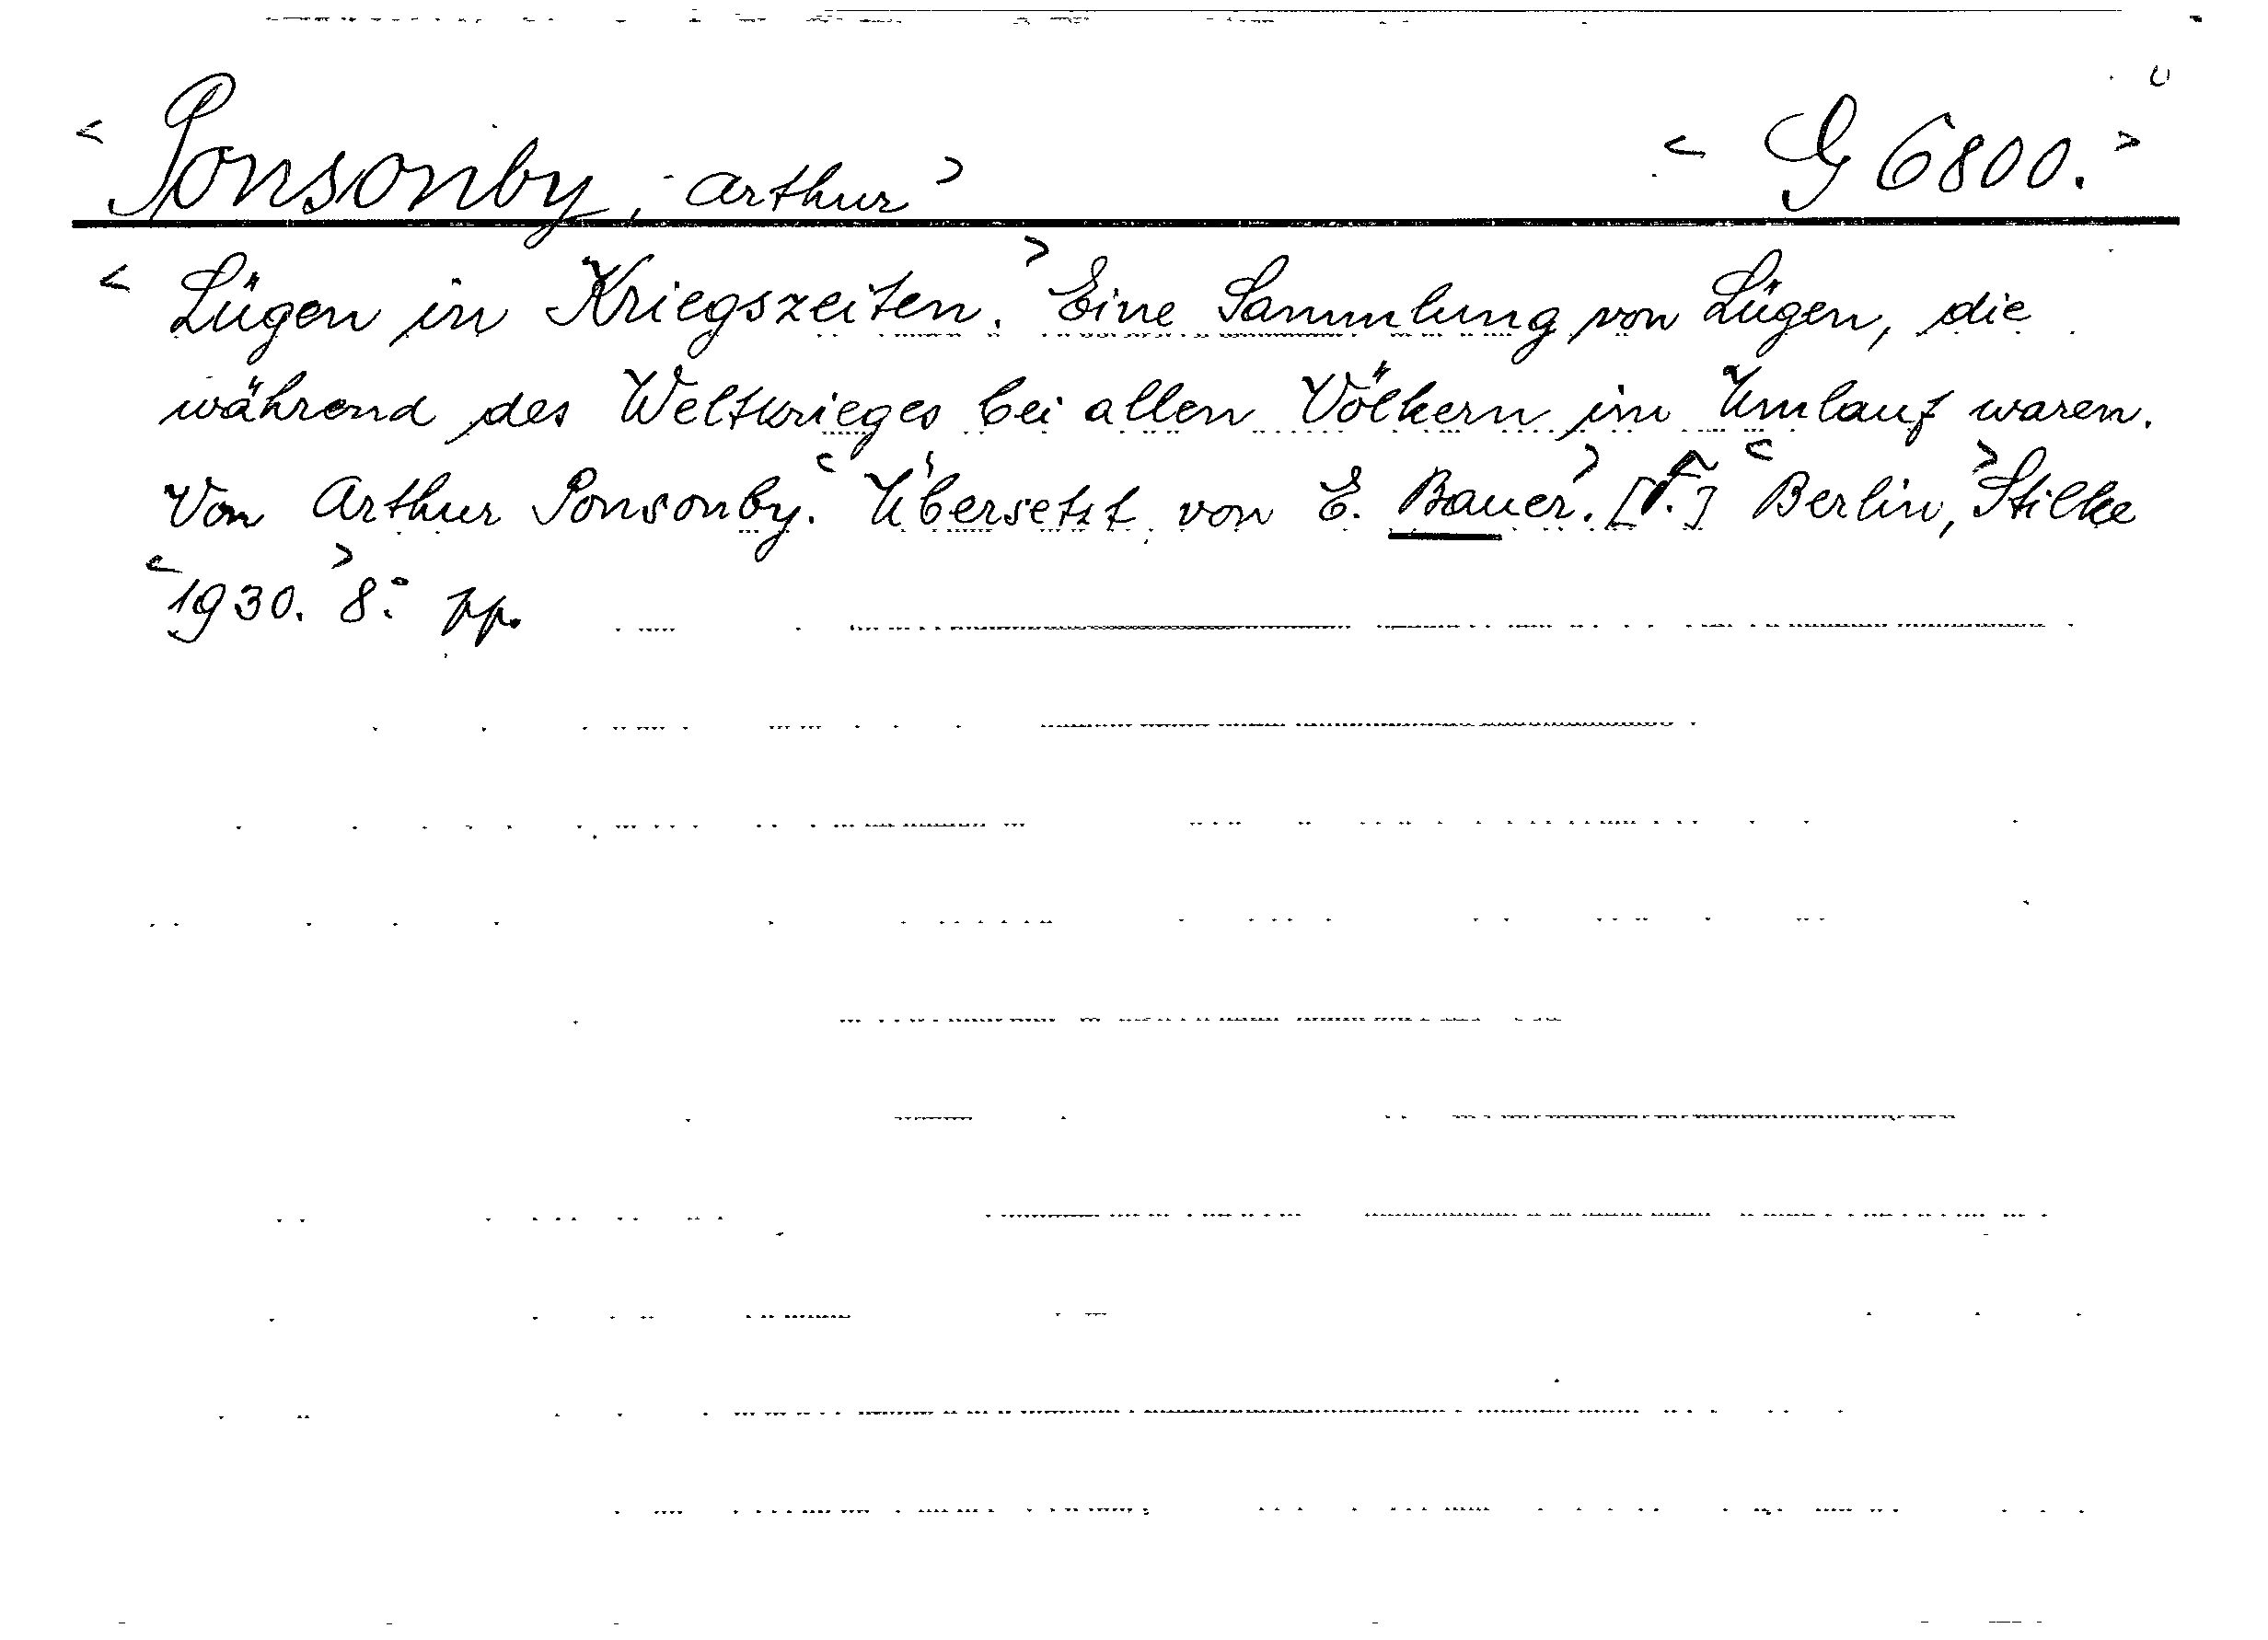 < Ponsonby, Arthur > < G 6800. >
< Lügen in Kriegszeiten. > Eine Sammlung von Lügen, die
während des Weltkrieges bei allen Völkern im Umlauf waren.
Von Arthur Ponsonby. < Übersetzt von E. Bauer. > [F.] < Berlin, > Stilke
< 1930. > 8.° pp.